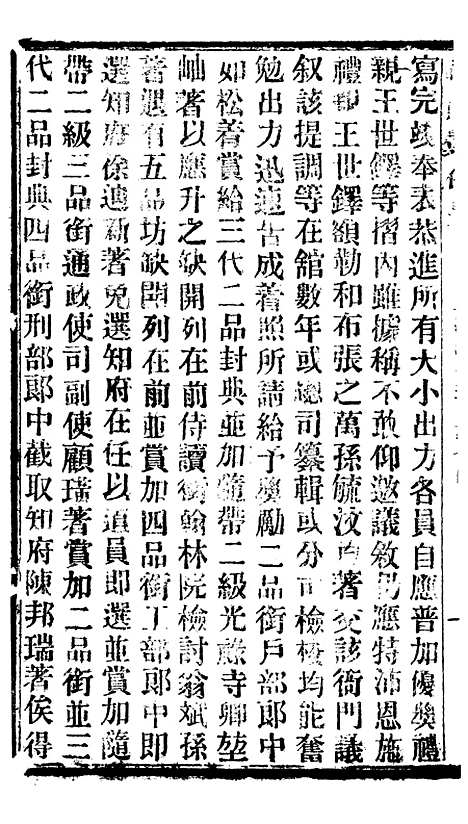 寫完竣奉表恭進所有大小出力各員自應普加優獎禮
親王世鐸等摺內雖據稱不敢仰邀議敘仍應特沛恩施
禮親王世鐸額勒和布張之萬孫毓汶均著交該衙門議
叙該提調等在館數年或總司纂輯或分司檢校均能奮
勉出力迅速告成着照所請給予獎勵二品銜戶部郎中
如松着賞給三代二品封典並加隨帶二級光祿寺卿堃
岫著以應升之缺開列在前侍讀銜翰林院檢討翁斌孫
著遇有五品坊缺開列在前並賞加四品銜工部郎中即
選知府徐遹新著免選知府在任以道員即選並賞加隨
帶二級三品銜通政使司副使顧璜著賞加二品銜並三
代二品封典四品銜刑部郎中截取知府陳邦瑞著俟得